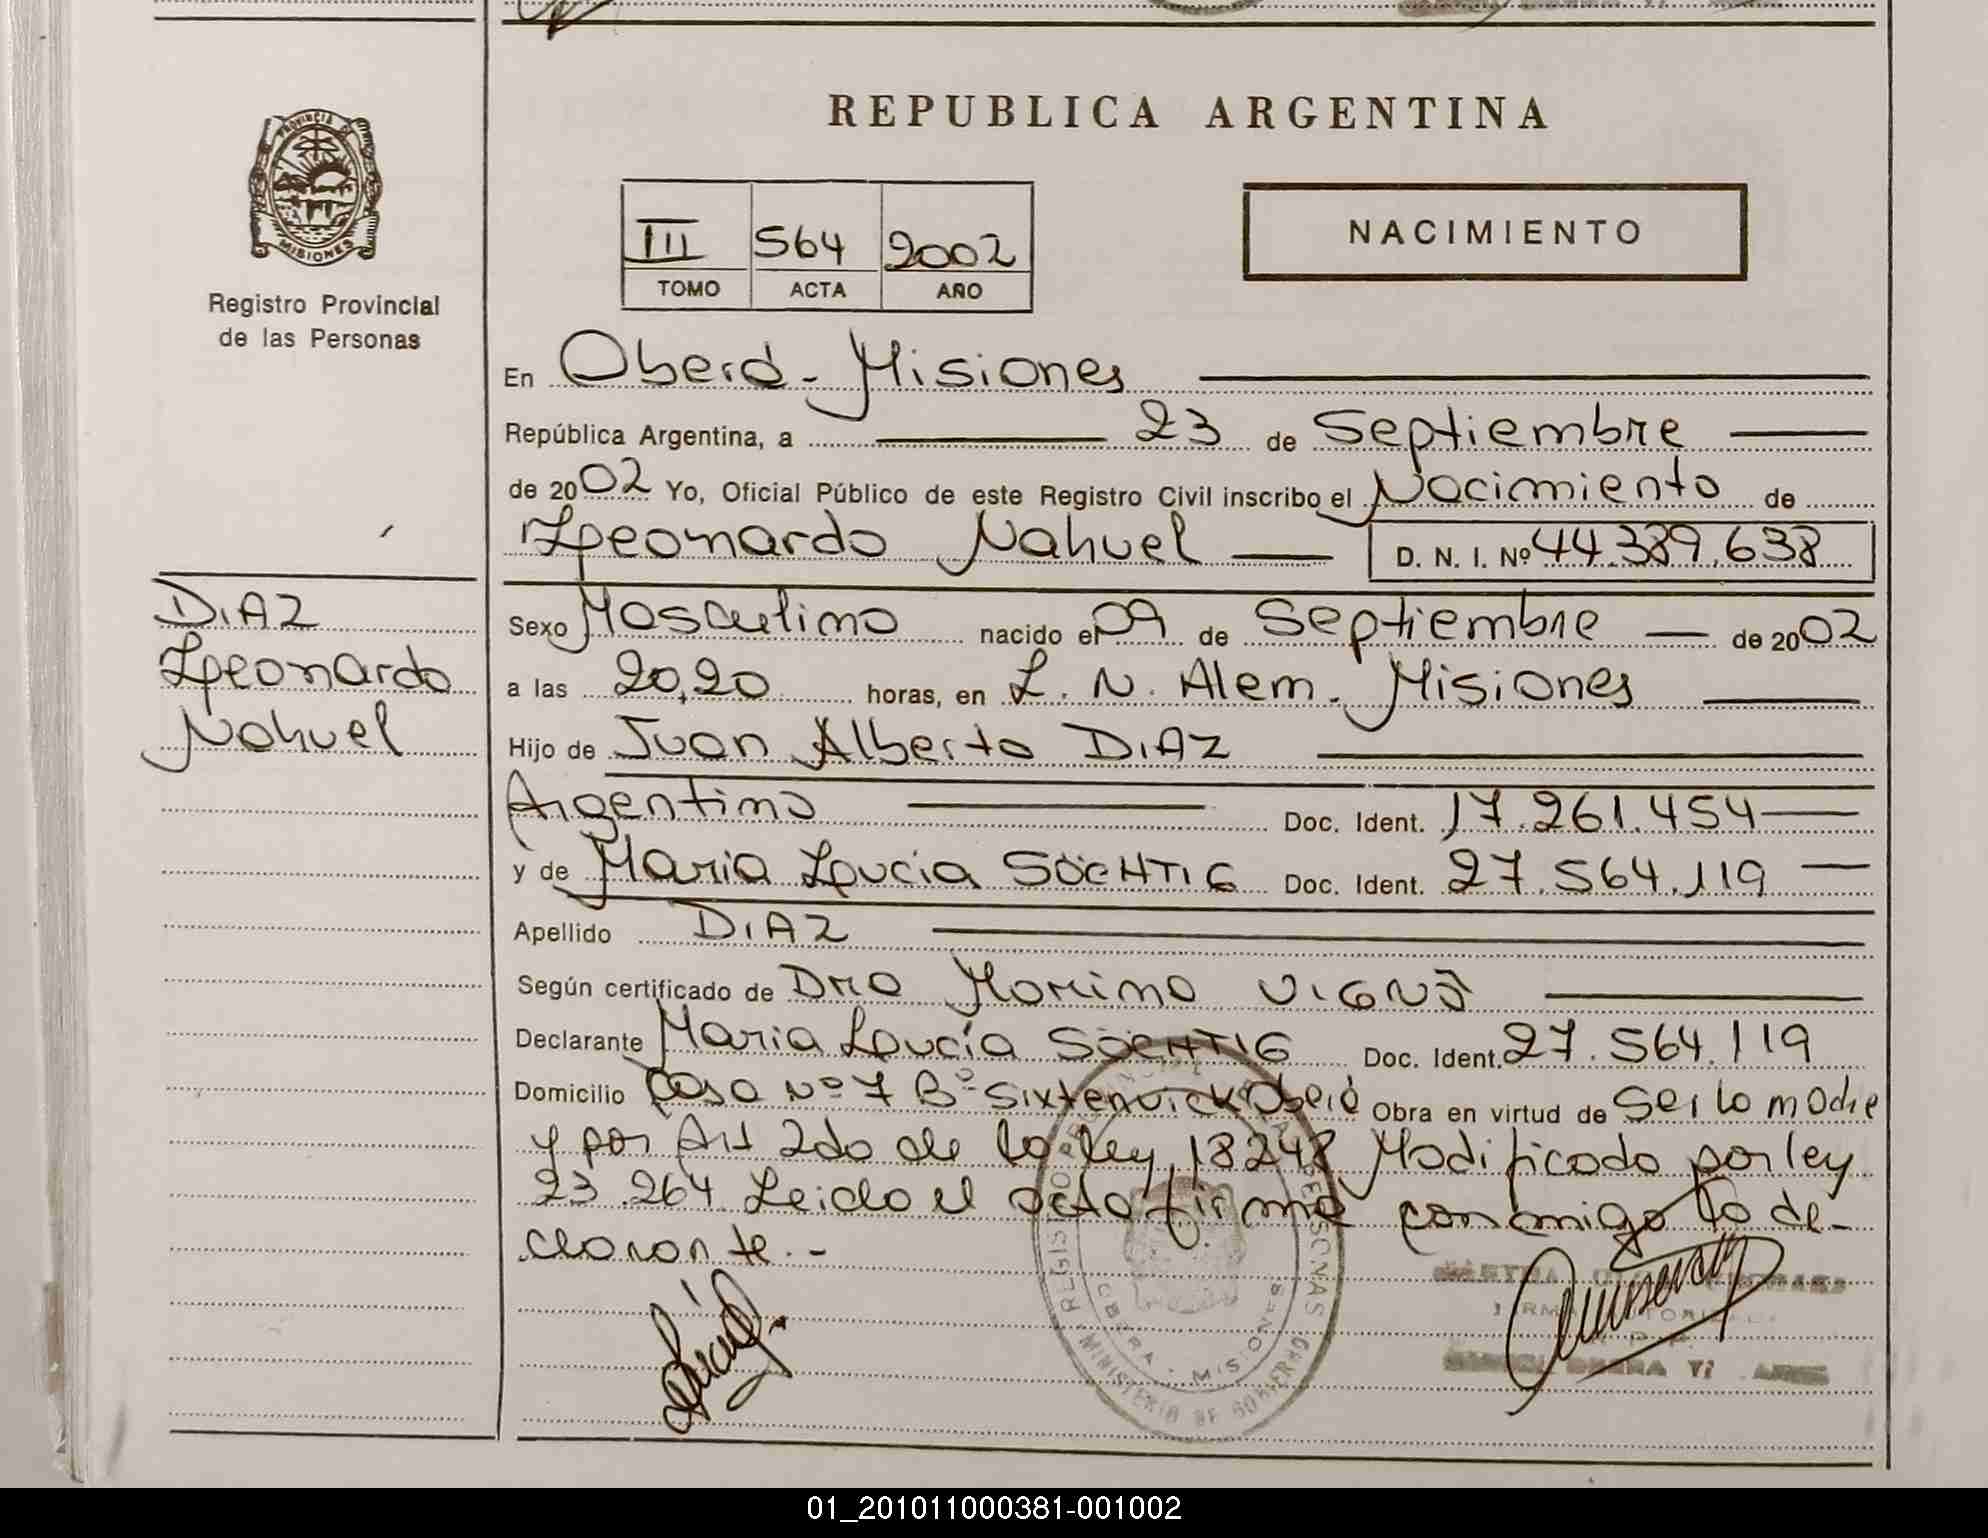 REPUBLICA ARGENTINA
PROVINCIA D
MISIONES
Registro Provincial
de las Personas
III 564 2002
TOMO ACTA AÑO
NACIMIENTO
En Oberá - Misiones
República Argentina, a 23 de Septiembre
de 2002 Yo, Oficial Público de este Registro Civil inscribo el Nacimiento de
Leonardo Nahuel D. N. I. Nº 44.389.638
DIAZ
Leonardo
Nahuel
Sexo Masculino nacido el 09 de Septiembre de 2002
a las 20,20 horas, en L. N. Alem. Misiones
Hijo de Juan Alberto DIAZ
Argentino Doc. Ident. 17.261.454
y de Maria Lucia SÖCHTIG Doc. Ident. 27.564.119
Apellido DIAZ
Según certificado de Dra Marina
Declarante Maria Lucía SÖCHTIG Doc. Ident. 27.564.119
Domicilio Casa Nº 7 Bº Sixtenvick Oberá Obra en virtud de Ser la madre
y por Art 2do de la ley 18248 Modificado por ley
23.264 Leido el acta firma conmigo la de-
clarante.-
MINISTERIO DE GOBIERNO
OBERA - MISIONES
01_201011000381-001002